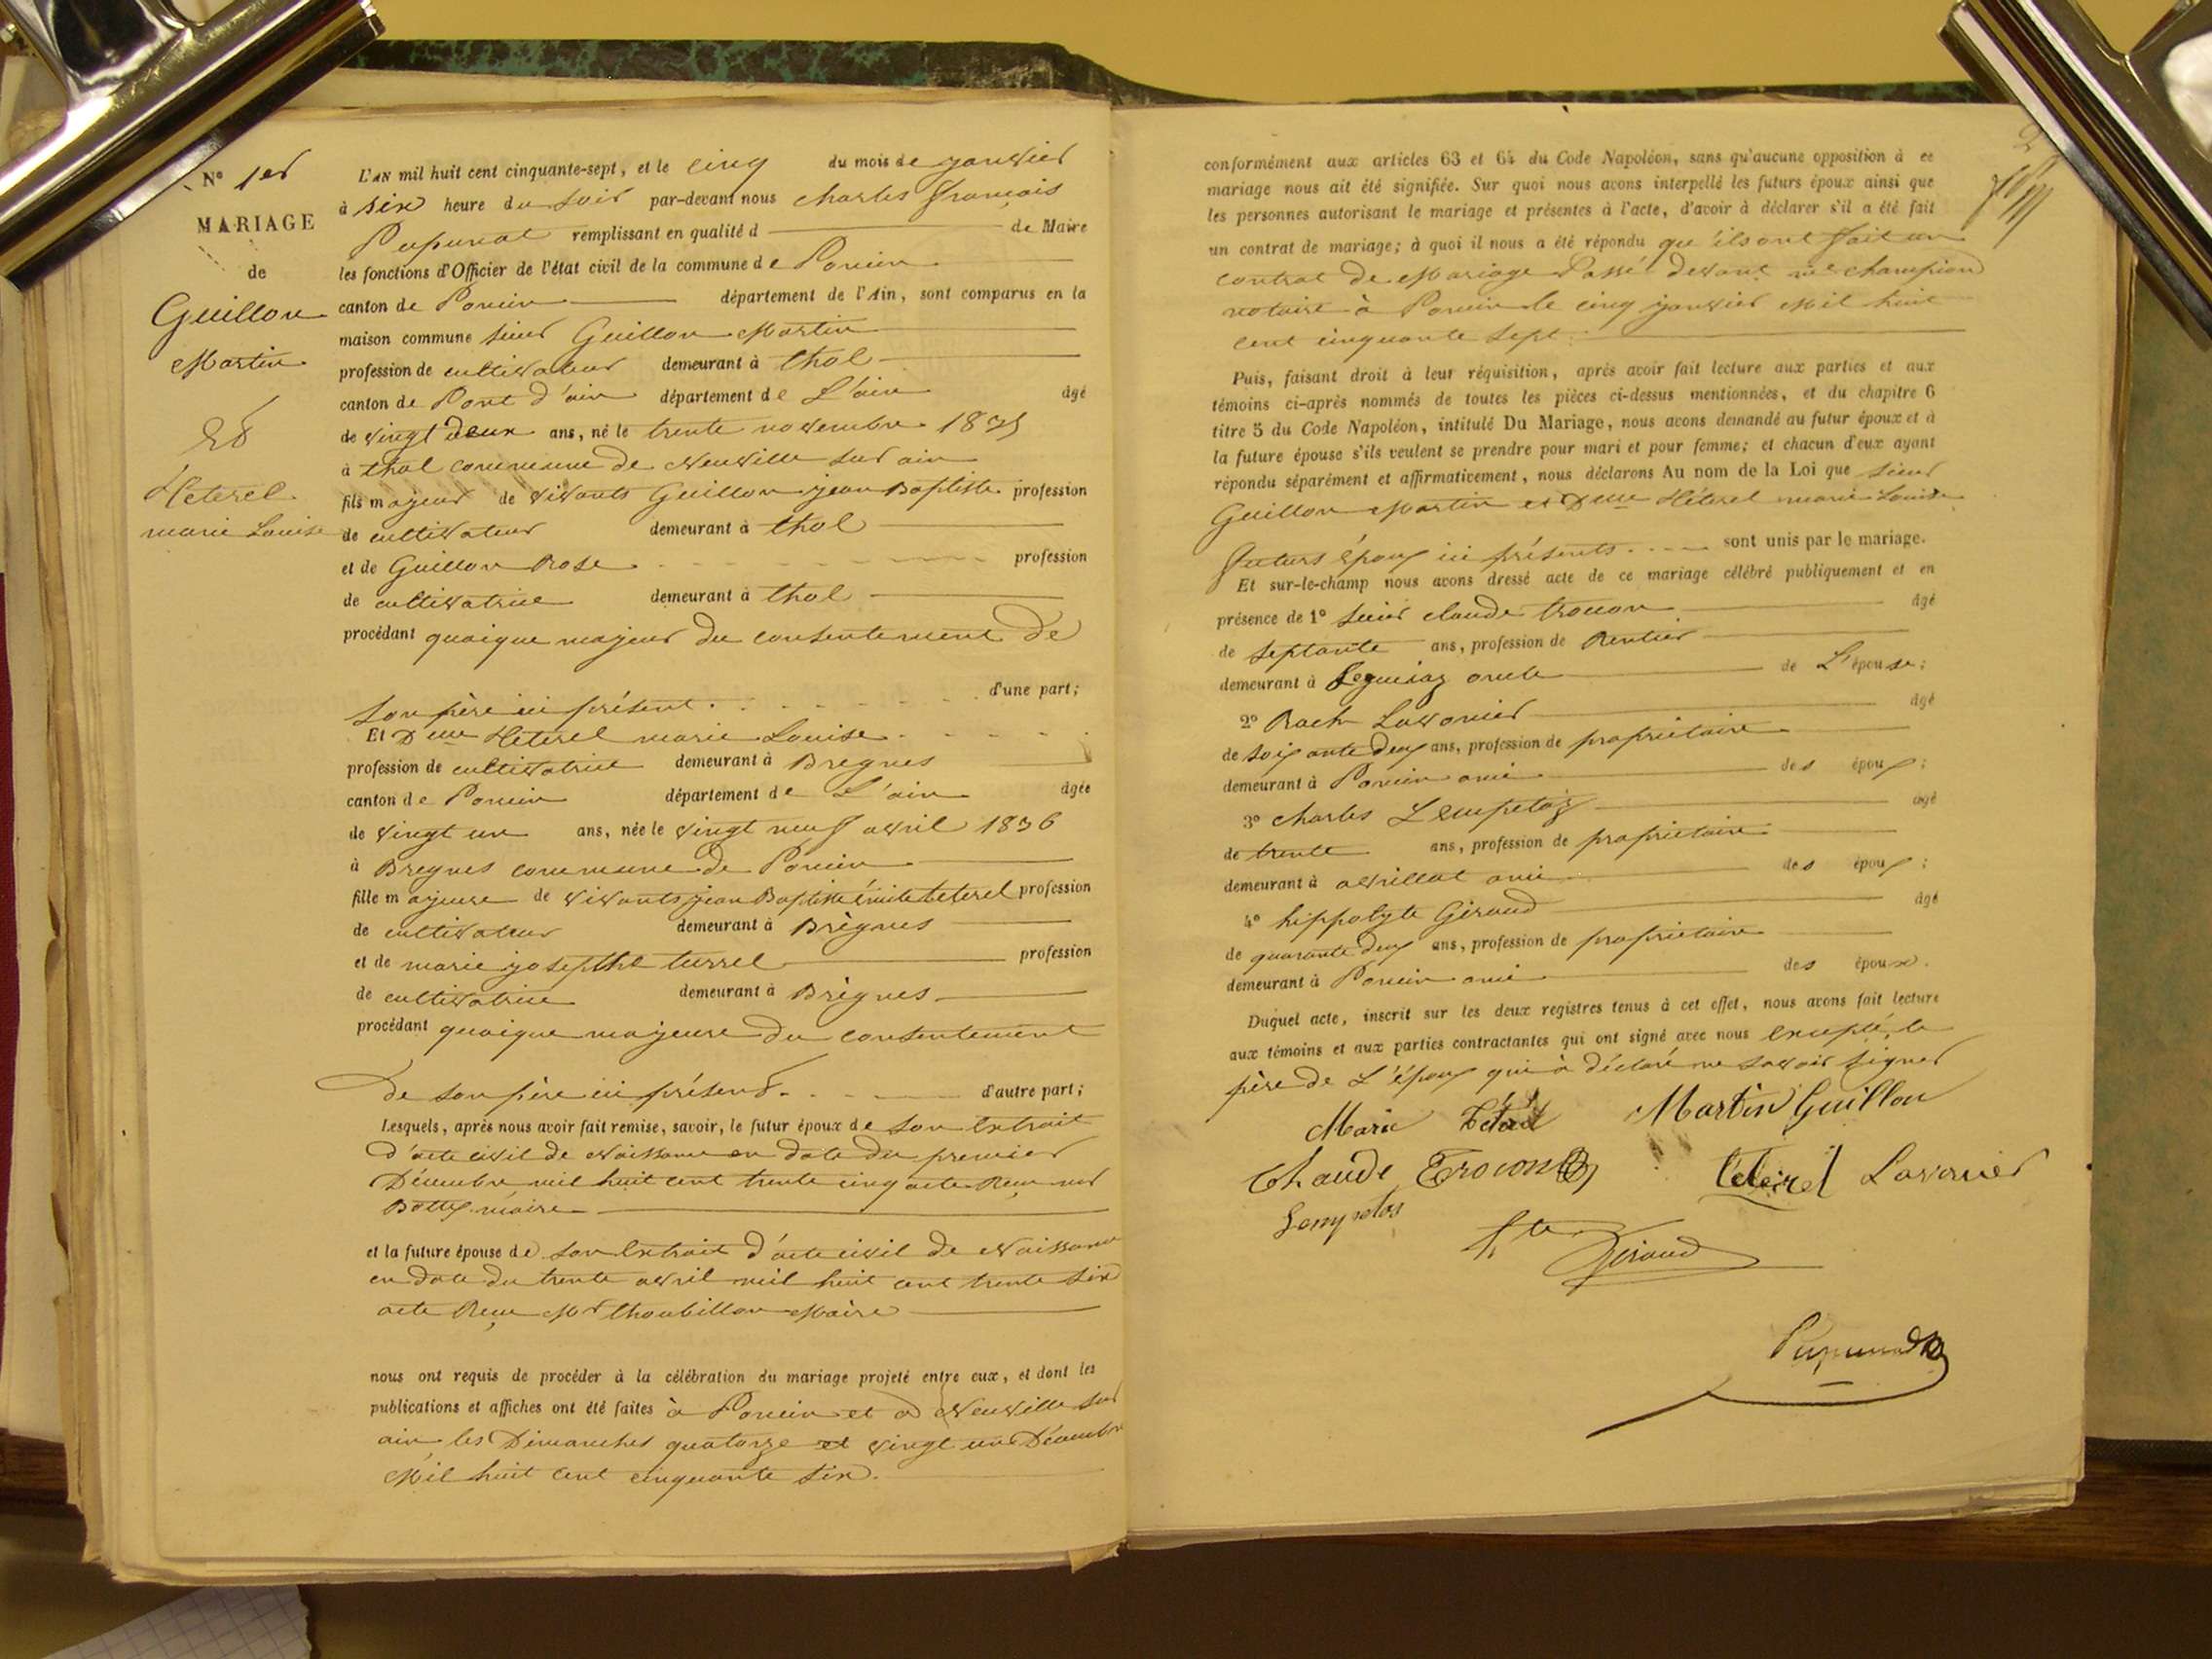 N° 1er
MARIAGE
de
Guillon
Martin
Et
Héterel
marie Louise
L'AN mil huit cent cinquante-sept, et le cinq du mois de janvier
à six heure du soir par-devant nous charles françois
Pupunat remplissant en qualité d de Maire
les fonctions d'Officier de l'état civil de la commune de Poncin
canton de Poncin département de l'Ain, sont comparus en la
maison commune sieur Guillon Martin
profession de cultivateur demeurant à thol
canton de Pont d'ain département de L'ain âgé
de vingt deux ans, né le trente novembre 1835
à thol commune de Neuville sur ain
fils majeur de vivants Guillon jean Baptiste profession
de cultivateur demeurant à thol
et de Guillon Rose profession
de cultivatrice demeurant à thol
procédant quoique majeur du consentement de
son père ici présent. d'une part;
Et Dlle Héterel marie Louise
profession de cultivatrice demeurant à Bregnes
canton de Poncin département de L'ain âgée
de vingt un ans, née le vingt neuf avril 1836
à Bregnes commune de Poncin
fille majeure de vivants jean Baptiste émile Leterel profession
de cultivateur demeurant à Brègnes
et de marie josepthe turrel profession
de cultivatrice demeurant à Brègnes
procédant quoique majeure du consentement
de son père ici présent. d'autre part;
Lesquels, après nous avoir fait remise, savoir, le futur époux de son Extrait
d'acte civil de Naissance en date du premier
Décembre mil huit cent trente cinq acte Reçu mr
maire
et la future épouse de son Extrait d'acte civil de Naissance
en date du trente avril mil huit cent trente six
acte Reçu Mr thoubillon Maire
nous ont requis de procéder à la célébration du mariage projeté entre eux, et dont les
publications et affiches ont été faites à Poncin et à Neuville sur
ain les Dimanches quatorze et vingt un Décembre
Mil huit cent cinquante six.
conformément aux articles 63 et 64 du Code Napoléon, sans qu'aucune opposition à ce
mariage nous ait été signifiée. Sur quoi nous avons interpellé les futurs époux ainsi que
les personnes autorisant le mariage et présentes à l'acte, d'avoir à déclarer s'il a été fait
un contrat de mariage; à quoi il nous a été répondu qu'ils ont fait un
contrat de Mariage Passé devant me champion
notaire à Poncin le cinq janvier Mil huit
cent cinquante sept.
Puis, faisant droit à leur réquisition, après avoir fait lecture aux parties et aux
témoins ci-après nommés de toutes les pièces ci-dessus mentionnées, et du chapitre 6
titre 5 du Code Napoléon, intitulé Du Mariage, nous avons demandé au futur époux et à
la future épouse s'ils veulent se prendre pour mari et pour femme; et chacun d'eux ayant
répondu séparément et affirmativement, nous déclarons Au nom de la Loi que sieur
Guillon Martin et Dlle Héterel marie Louise
futurs époux ici présents sont unis par le mariage.
Et sur-le-champ nous avons dressé acte de ce mariage célébré publiquement et en
présence de 1° sieur claude trocon âgé
de septante ans, profession de Rentier
demeurant à Leguisaz oncle de L'épouse;
2° Roch Lavorier âgé
de soixante deux ans, profession de propriétaire
demeurant à Poncin ami des époux;
3° charles Lempetaz âgé
de trente ans, profession de propriétaire
demeurant à avrillat ami des époux;
4° hippolyte Giraud âgé
de quarante deux ans, profession de propriétaire
demeurant à Poncin ami des époux.
Duquel acte, inscrit sur les deux registres tenus à cet effet, nous avons fait lecture
aux témoins et aux parties contractantes qui ont signé avec nous Excepté le
père de L'époux qui à déclaré ne savoir signer
Marie Martin Guillon
Chaude Trocon Léteirel Lavorier
Hte
Giraud
Pupunat